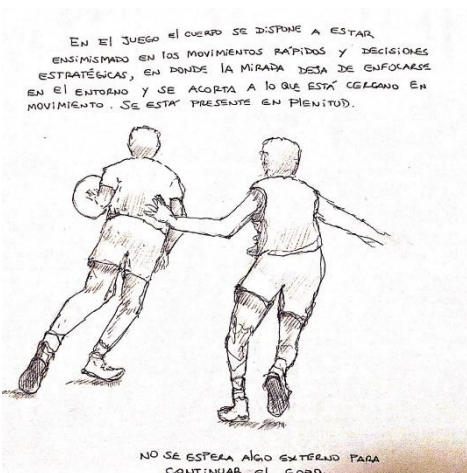 EN El JUEGO el cuerpo SE DISPONE A ESTAR
ENSIMISMADO EN los MOVIMIENTOS RÁPIDOS y DECISIONES
ESTRATÉGICAS, EN DONDE lA MIRADA DEJA DE ENFOCARSE
EN El ENTORNO y SE ACORTA A lO QUE ESTÁ CERCANO EN
MOVIMIENTO. SE ESTÁ PRESENTE EN PlENITUD.
NO SE ESPERA AlGO EXTERNO PARA
CONTINUAR El GOZO.